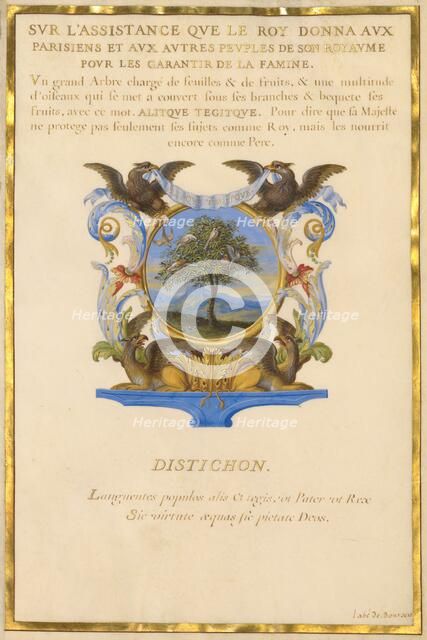 SVR L'ASSISTANCE QVE LE ROY DONNA AVX
PARISIENS ET AVX AVTRES PEVPLES DE SON ROYAVME
POVR LES GARANTIR DE LA FAMINE.
Vn grand Arbre chargé de feuilles & de fruits, & une multitude
d'oiseaux qui se met a couvert sous ses branches & bequete ses
fruits, avec ce mot. ALITQVE TEGITQVE. Pour dire que sa Majesté
ne protege pas seulement ses sujets comme Roy, mais les nourrit
encore comme Pere.
Heritage
Heritage
Heritage
Heritage
Heritage
Heritage
DISTICHON.
Languentes populos alis et tegis, vt Pater vt Rex
Sic virtute æquas sic pietate Deos.